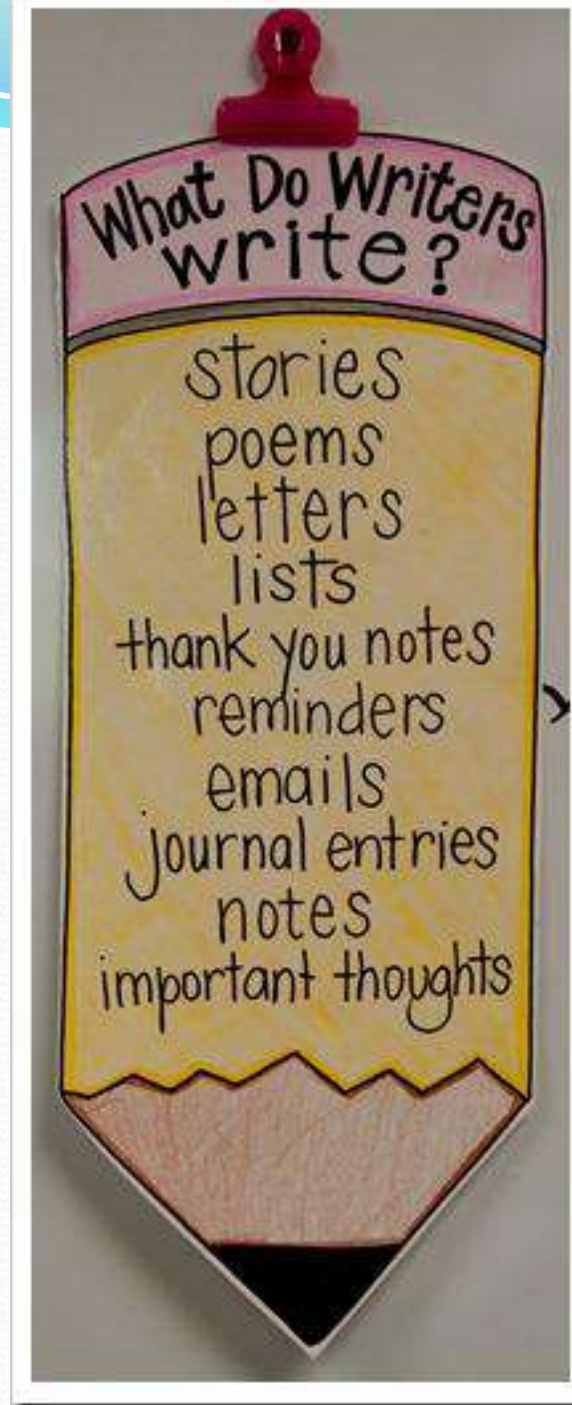 What Do Writers
write?
stories
poems
letters
lists
thank you notes
reminders
emails
journal entries
notes
important thoughts